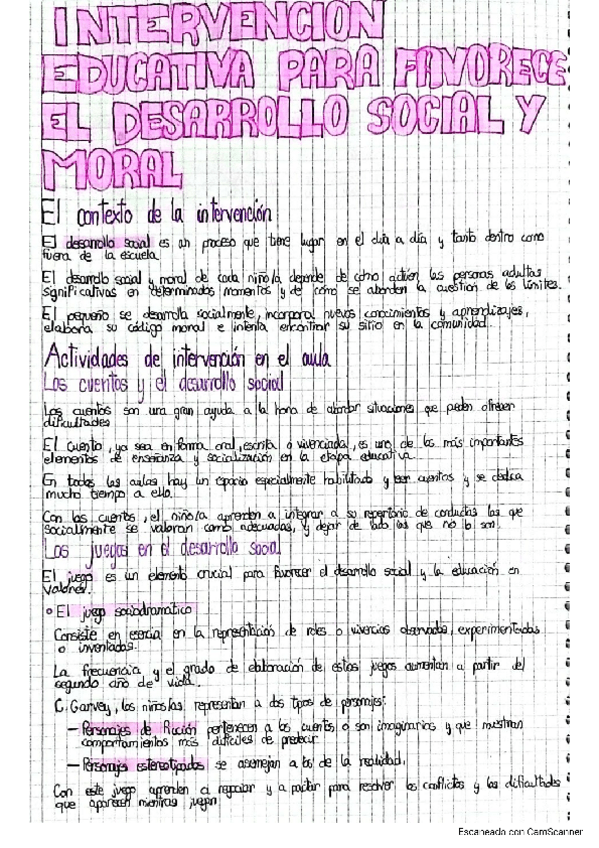 INTERVENCIÓN
EDUCATIVA PARA FAVORECE
EL DESARROLLO SOCIAL Y
MORAL
El contexto de la intervención
El desarrollo social es un proceso que tiene lugar en el día a día y tanto dentro como
fuera de la escuela.
El desarrollo social y moral de cada niño/a depende de cómo actúen las personas adultas
significativas en determinados momentos y de cómo se aborden la cuestión de los límites.
El pequeño se desarrolla socialmente, incorpora nuevos conocimientos y aprendizajes,
elabora su código moral e intenta encontrar su sitio en la comunidad.
Actividades de intervención en el aula
Los cuentos y el desarrollo social
Los cuentos son una gran ayuda a la hora de abordar situaciones que pueden ofrecer
dificultades
El cuento, ya sea en forma oral, escrita o vivenciada, es uno de los más importantes
elementos de enseñanza y socialización en la etapa educativa.
En todas las aulas hay un espacio especialmente habilitado y leer cuentos y se dedica
mucho tiempo a ello.
Con los cuentos, el niño/a aprenden a integrar a su repertorio de conductas las que
socialmente se valoran como adecuadas, y dejar de lado las que no lo son.
Los juegos en el desarrollo social
El juego es un elemento crucial para favorecer el desarrollo social y la educación en
valores.
• El juego sociodramático
Consiste en esencia en la representación de roles o vivencias observadas, experimentadas
o inventadas.
La frecuencia y el grado de elaboración de estos juegos aumentan a partir del
segundo año de vida.
C. Garvey, los niños/as representan a dos tipos de personajes:
— Personajes de ficción pertenecen a los cuentos o son imaginarios y que muestran
comportamientos más difíciles de predecir
— Personajes estereotipados se asemejan a los de la realidad.
Con este juego aprenden a negociar y a pactar para resolver los conflictos y las dificultades
que aparecen mientras juegan
Escaneado con CamScanner